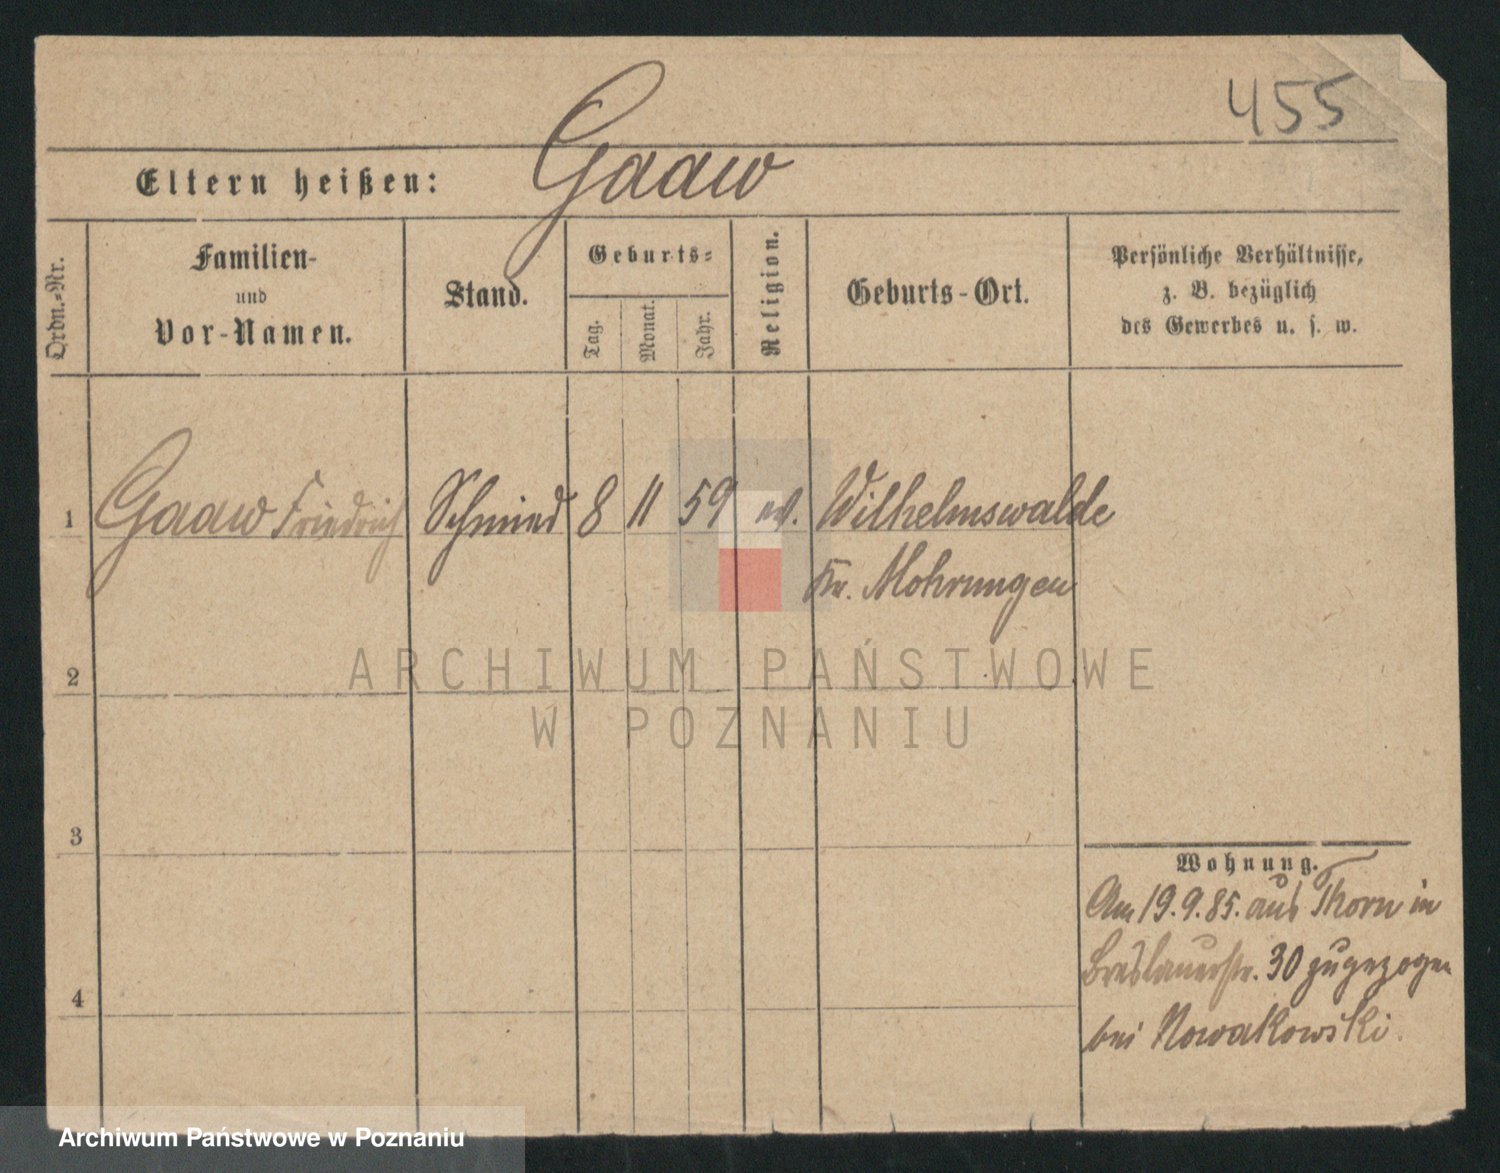 455
Eltern heißen: Gaaw
Ordn.-Nr.
Familien-
und
Vor-Namen.
Stand.
Geburts-
Tag.
Monat.
Jahr.
Religion.
Geburts-Ort.
Persönliche Verhältnisse,
z. B. bezüglich
des Gewerbes u. s. w.
1 Gaaw Friedrich Schmied 8 11 59 ev. Wilhelmswalde
Kr. Mohrungen
2
3
4
Wohnung.
Am 19.9.85. aus Thorn in
Breslauerstr. 30 zugezogen
bei Nowakowski.
ARCHIWUM PAŃSTWOWE
W POZNANIU
Archiwum Państwowe w Poznaniu